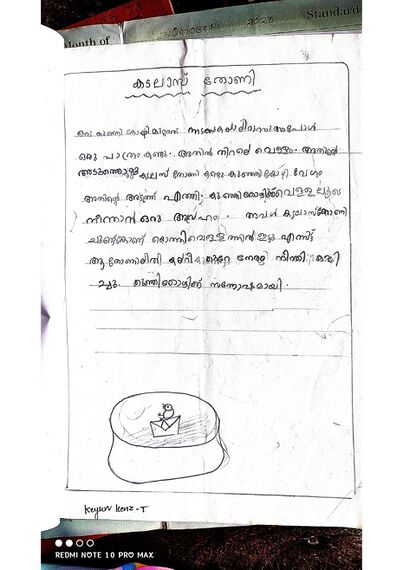 Month of
OCTOBER 2023
Standard
കടലാസ് തോണി
ഒരു കുഞ്ഞി കോഴി
ഒരു പാത്രം കണ്ടു. അതിൽ നിറയെ വെള്ളം. അതിന്റെ
അടുത്തൊരു കടലാസ് തോണി കണ്ടു കുഞ്ഞി കോഴി വേഗം
അതിന്റെ അടുത്ത് എത്തി; കുഞ്ഞിക്കോഴിക്ക് വെള്ളത്തിലൂടെ
നീന്താൻ ഒരു ആഗ്രഹം. അവൾ കടലാസ്തോണി
ചുണ്ട്കൊണ്ട് കൊത്തി വെള്ളത്തിൽ ഇട്ടു എന്നിട്ട്
ആ തോണിയിൽ കയറി കുറേ നേരം നീന്തി കളി
ച്ചു. കുഞ്ഞിക്കോഴിക്ക് സന്തോഷമായി.
Keyur Kenz -T
REDMI NOTE 10 PRO MAX